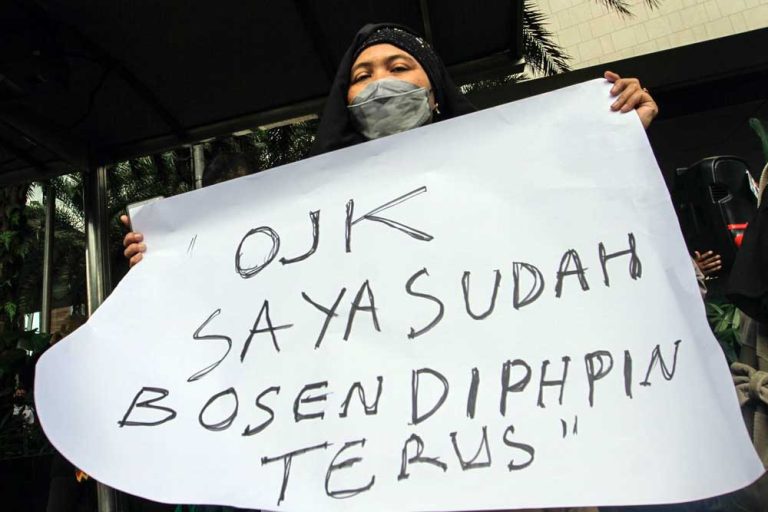 "OJK
SAYA SUDAH
BOSEN DIPHPIN
TERUS"